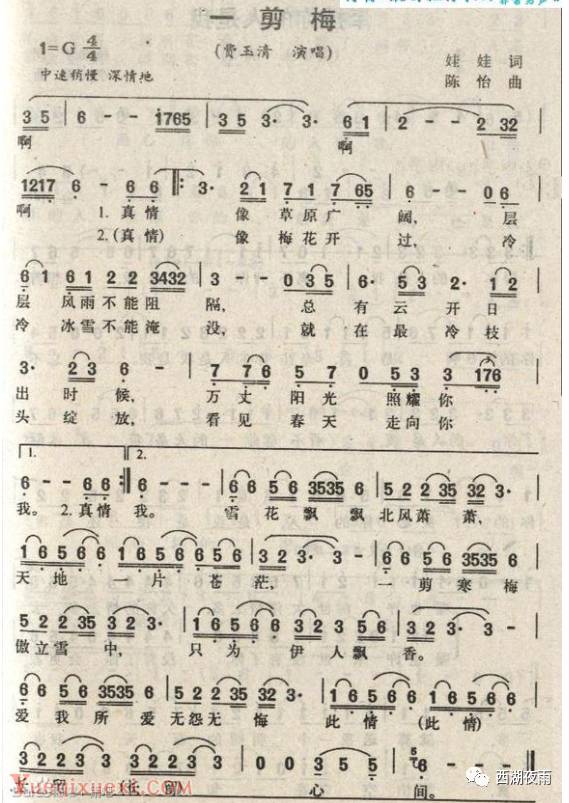 一剪梅
1=G 4/4
(费玉清 演唱)
娃娃 词
中速稍慢 深情地
陈怡 曲
3 5 | 6 - - i765 | 3 5 3 · 6 1 | 2 - 2 32 |
啊 啊
1217 6 · 6 6 :| 3 · 2 1 7 1 7 65 | 6 - - 0 6 |
啊 1.真情 像 草原广 阔, 层
2.(真情) 像 梅花开 过, 冷
6 1 6 1 2 2 3432 | 3 - - 0 3 5 | 6 5 3 · 2 1 2 |
层 风雨不能阻 隔, 总 有 云 开 日
冷 冰雪不能淹 没, 就 在 最 冷 枝
3 · 2 3 6 - | 7 7 7 6 5 7 | 0 5 5 3 3 176 |
出 时 候, 万 丈 阳 光 照耀你
头 绽 放, 看 见 春 天 走向你
1. 2.
6 - - 6 6 :| 6 - - - | 6 5 6 3535 6 | 5 2 2 35 32 3 · |
我。 2.真情 我。 雪 花 飘飘 北风萧 萧,
1 6 5 6 1 6 5 6 | 3 2 3 · 3 - | 6 6 5 6 3535 6 |
天 地 一 片 苍 茫, 一 剪 寒 梅
5 2 2 35 32 3 · | 3 2 3 5 6 1 | 3 2 3 · 3 - |
傲立雪 中, 只 为 伊 人 飘 香。
6 6 5 6 3535 6 | 5 2 2 35 32 3 · | 1 6 5 6 1 6 5 6 |
爱 我 所 爱 无怨无 悔 此 情 (此 情)
3 2 2 3 | 3 - - - | 6 - - - | 6 - - - |
长 留 (长 留) 心 间。
Yuefuxiexi1.com
西湖夜雨